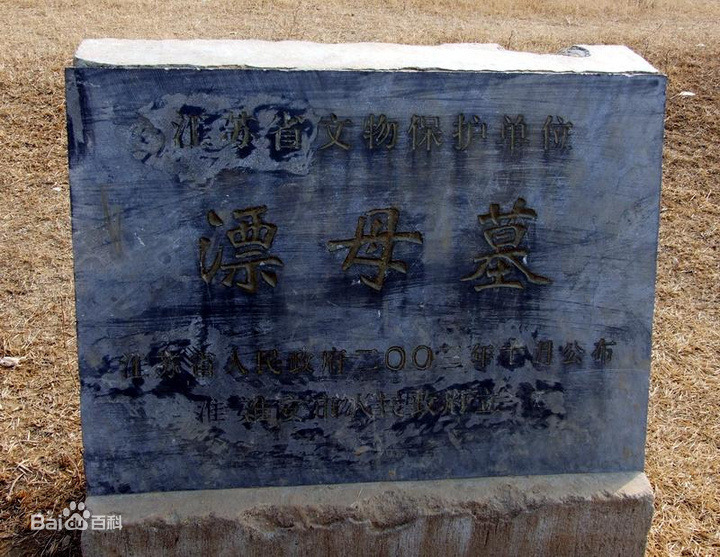 江苏省文物保护单位
漂母墓
江苏省人民政府二〇〇二年十月公布
淮安市人民政府立
Bai百科